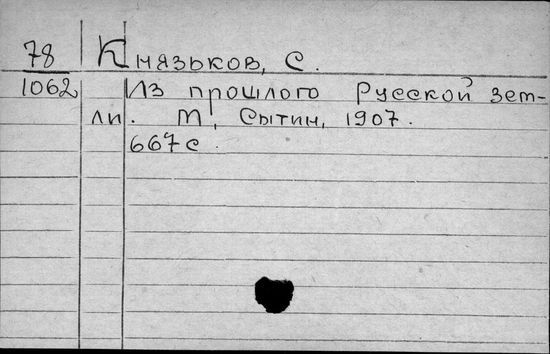 78 Князьков, С.
1062 Из прошлого Русской зем-
ли. М, Сытин, 1907.
667 с.